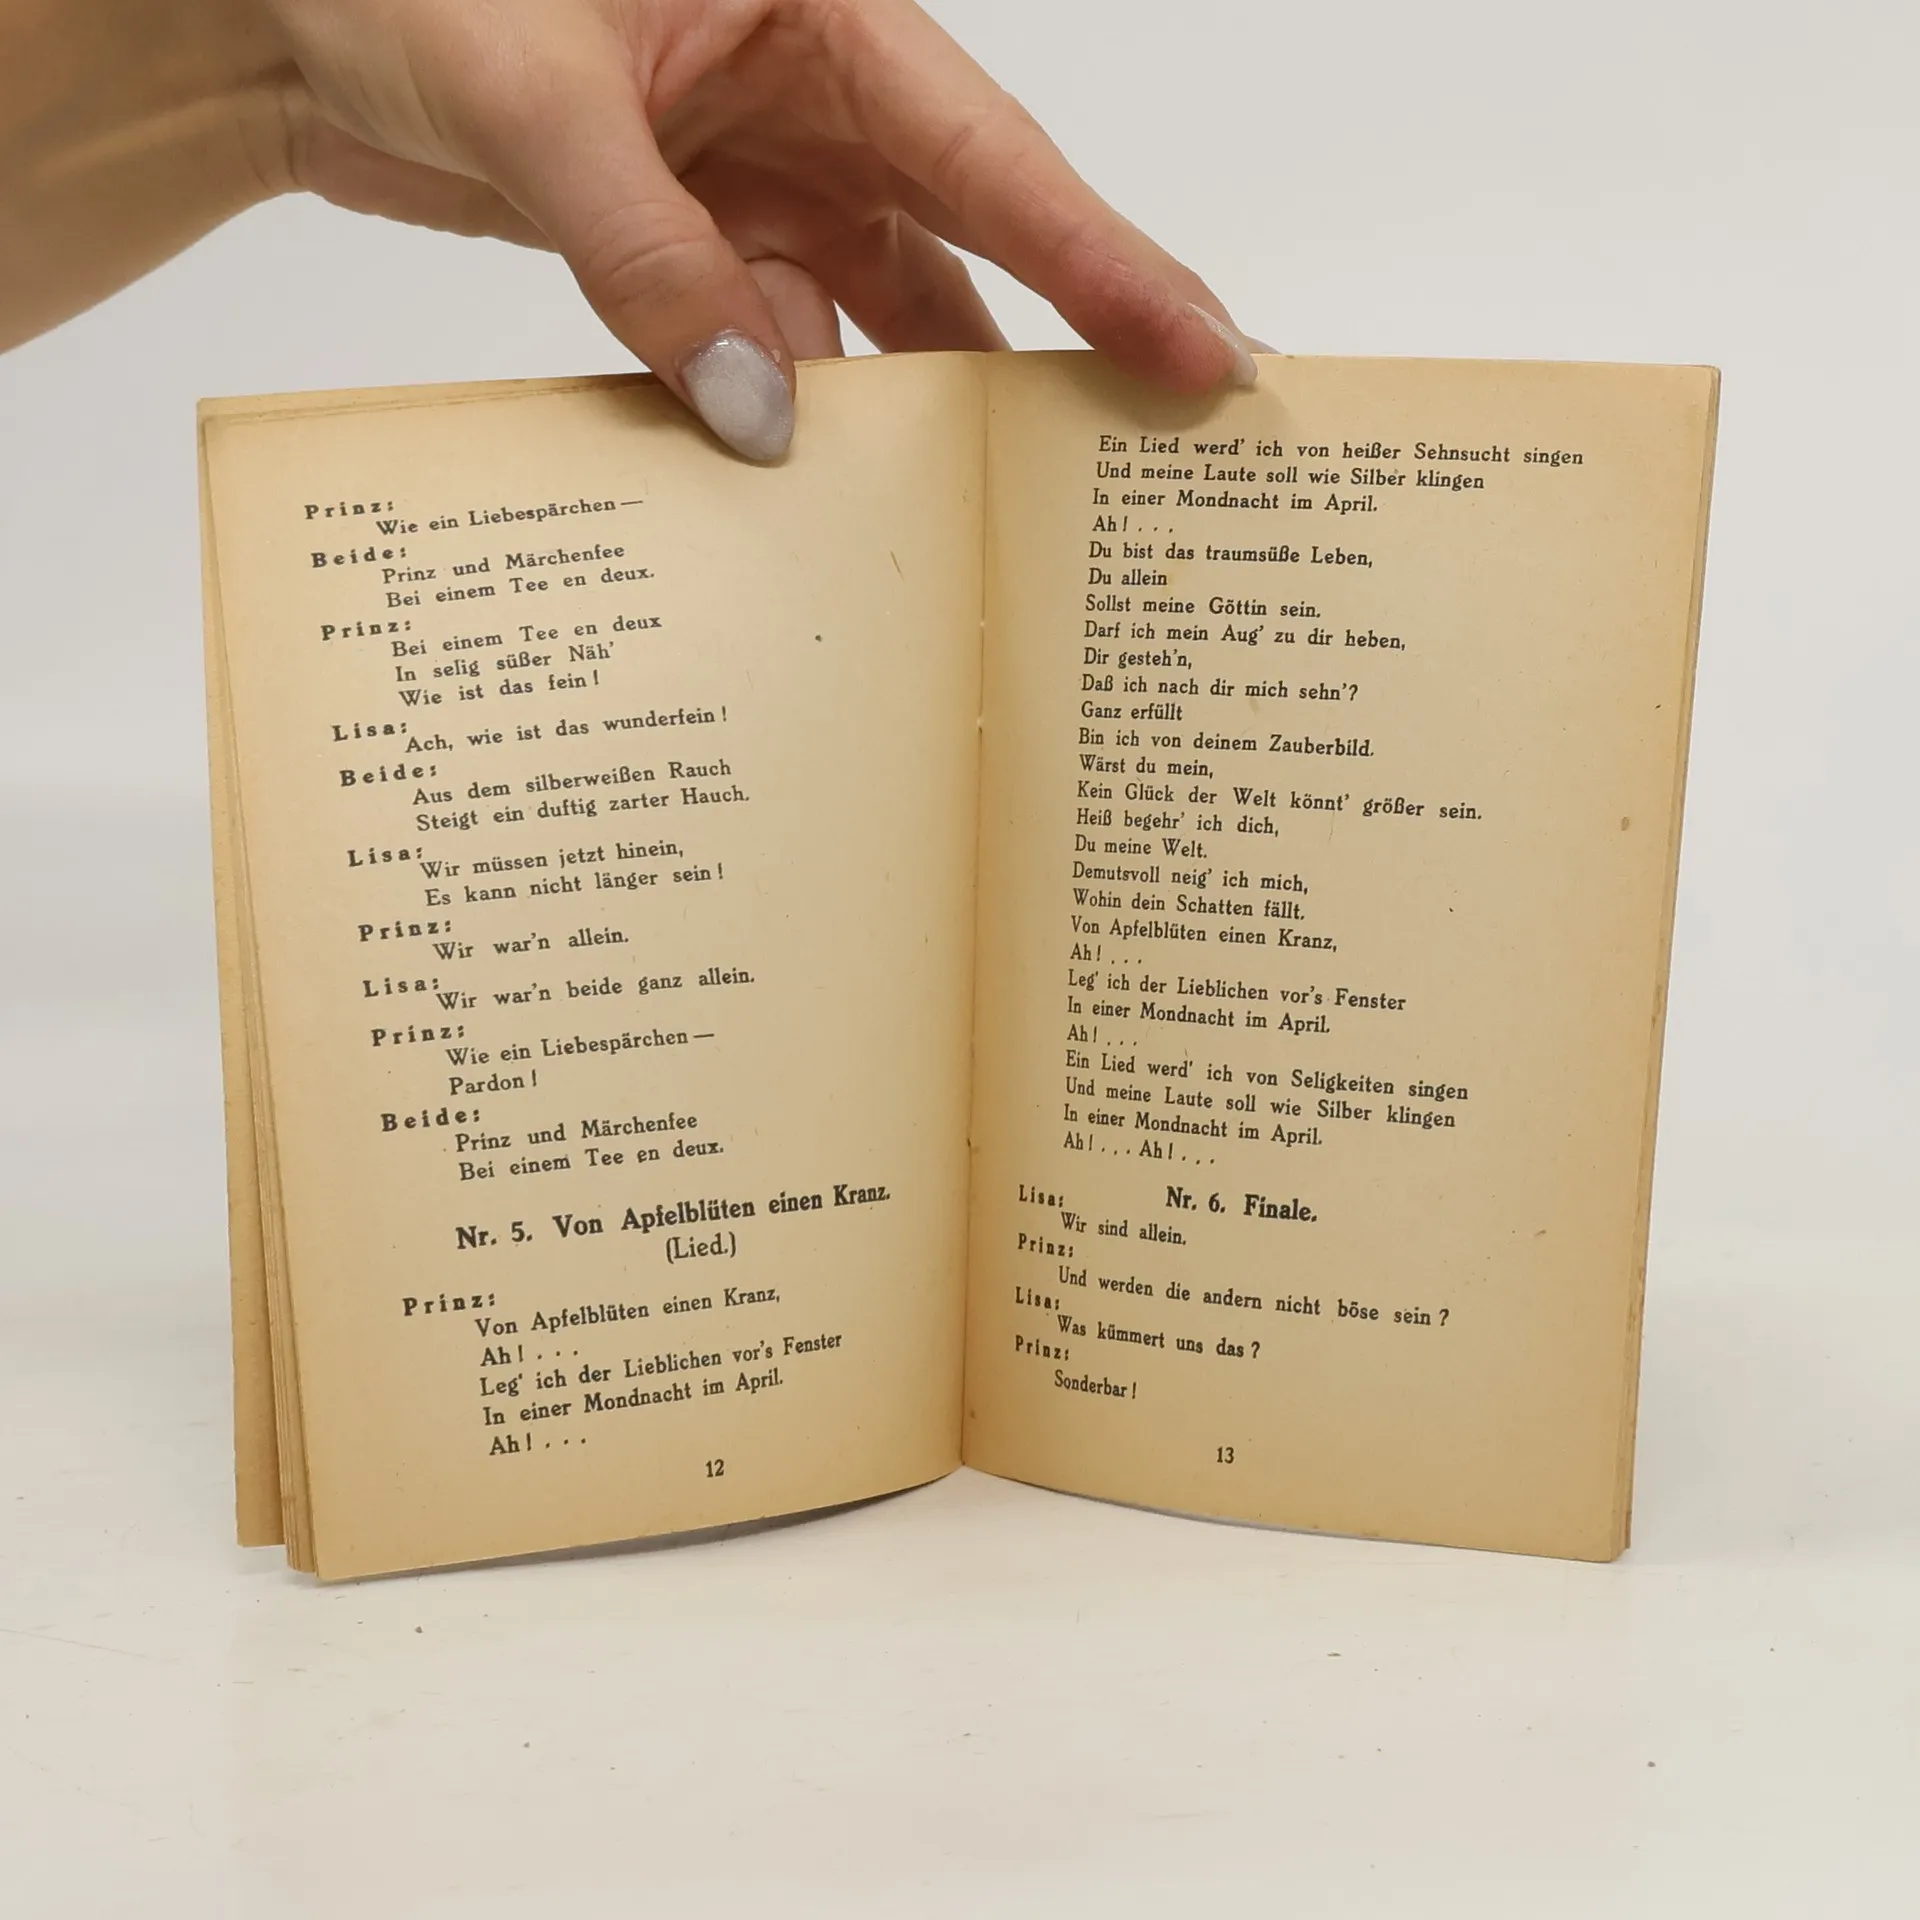 Prinz:
Wie ein Liebespärchen —
Beide:
Prinz und Märchenfee
Bei einem Tee en deux.
Prinz:
Bei einem Tee en deux
In selig süßer Näh'
Wie ist das fein!
Lisa:
Ach, wie ist das wunderfein!
Beide:
Aus dem silberweißen Rauch
Steigt ein duftig zarter Hauch.
Lisa:
Wir müssen jetzt hinein,
Es kann nicht länger sein!
Prinz:
Wir war'n allein.
Lisa:
Wir war'n beide ganz allein.
Prinz:
Wie ein Liebespärchen —
Pardon!
Beide:
Prinz und Märchenfee
Bei einem Tee en deux.
Nr. 5. Von Apfelblüten einen Kranz.
(Lied.)
Prinz:
Von Apfelblüten einen Kranz,
Ah! . . .
Leg' ich der Lieblichen vor's Fenster
In einer Mondnacht im April.
Ah! . . .
12
Ein Lied werd' ich von heißer Sehnsucht singen
Und meine Laute soll wie Silber klingen
In einer Mondnacht im April.
Ah! . . .
Du bist das traumsüße Leben,
Du allein
Sollst meine Göttin sein.
Darf ich mein Aug' zu dir heben,
Dir gesteh'n,
Daß ich nach dir mich sehn'?
Ganz erfüllt
Bin ich von deinem Zauberbild.
Wärst du mein,
Kein Glück der Welt könnt' größer sein.
Heiß begehr' ich dich,
Du meine Welt.
Demutsvoll neig' ich mich,
Wohin dein Schatten fällt.
Von Apfelblüten einen Kranz,
Ah! . . .
Leg' ich der Lieblichen vor's Fenster
In einer Mondnacht im April.
Ah! . . .
Ein Lied werd' ich von Seligkeiten singen
Und meine Laute soll wie Silber klingen
In einer Mondnacht im April.
Ah! . . . Ah! . . .
Nr. 6. Finale.
Lisa:
Wir sind allein.
Prinz:
Und werden die andern nicht böse sein?
Lisa:
Was kümmert uns das?
Prinz:
Sonderbar!
13